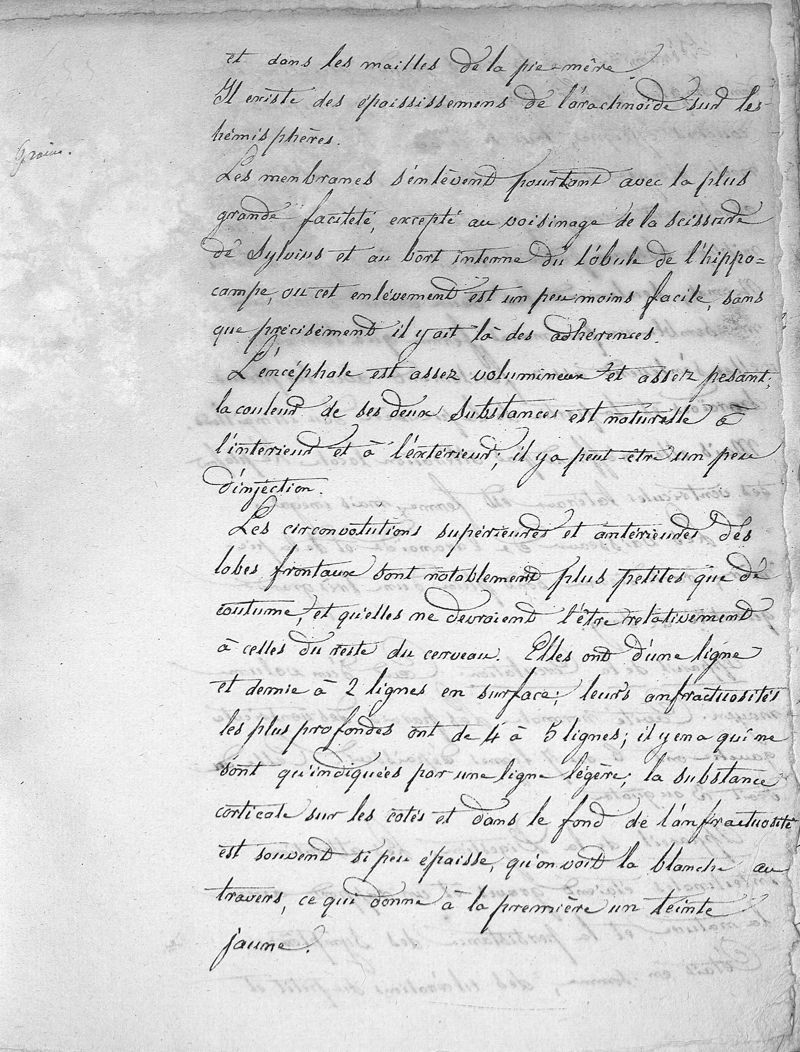 et dans les mailles de la pie-mère
Il existe des épaississemens de l'arachnoïde sur les
hémisphères.
Les menbranes s'enlèvent pourtant avec la plus
grande faciteté, excepté au voisinage de la scissure
de Sylvius et au bort interne du lobule de l'hippo=
campe, ou cet enlèvement est un peu moins facile, sans
que précisément il y ait là des adhérences.
L'éncéphale est assez volumineux et assez pesant;
la couleur de ses deux substances est naturelle à
l'interieur et à l'extérieur; il y a peut-être un peu
d'injection.
Les circonvolutions supérieures et antérieures des
lobes frontaux sont notablement plus petites que de
coutume, et qu'elles ne devroient l'être relativement
à celles du reste du cerveau. Elles ont d'une ligne
et demie à 2 lignes en surface; leurs anfractuosités
les plus profondes ont de 4 à 5 lignes; il y en a qui ne
sont qu'indiquées par une ligne légère; la substance
corticale sur les cotés et dans le fond de l'anfractuosité
est souvent si peu épaisse, qu'on voit la blanche au
travers, ce qui donne à la première un teinte
jaune.